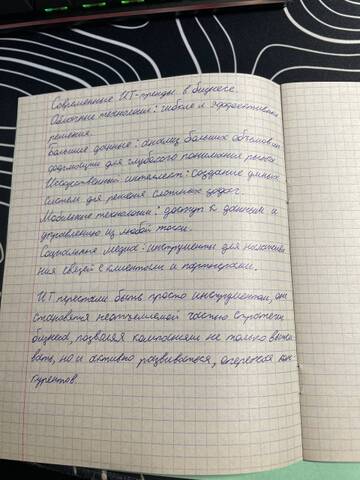 Современные ИТ-тренды в бизнесе.
Облачные технологии: гибкие и эффективные
решения.
Большие данные: анализ больших объемов ин
формации для глубокого понимания рынка.
Искусственный интеллект: создание умных
систем для решения сложных задач.
Мобильные технологии: доступ к данным и
управлению из любой точки.
Социальные медиа: инструменты для налажива
ния связей с клиентами и партнерами.
ИТ перестали быть просто инструментом, они
становятся неотъемлемой частью стратегии
бизнеса, позволяя компаниям не только выжи
вать, но и активно развиваться, опережая кон-
курентов.